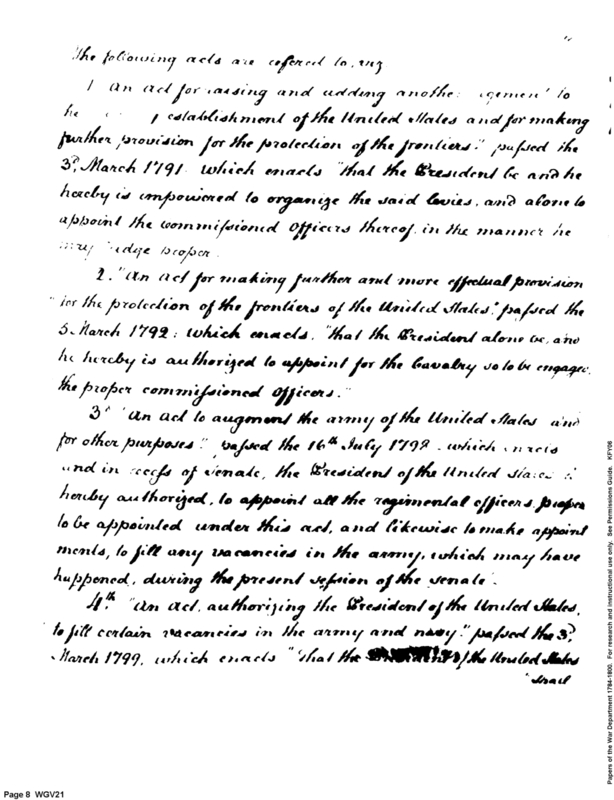 The following acts are refered to, viz
1 An act for raising and adding another to
the establishment of the United States and for making
further provision for the protection of the frontiers." passed the
3.d March 1791. which enacts "that the President be and he
hereby is empowered to organize the said levies, and alone to
appoint the commissioned officers thereof, in the manner he
may judge proper
2. "An act for making further and more effectual provision
"for the protection of the frontiers of the United States." passed the
5. March 1792: which enacts, "that the President alone be, and
he hereby is authorized to appoint for the Cavalry so to be engaged,
the proper commissioned officers."
3.d "An act to augment the army of the United States and
for other purposes." passed the 16th July 1798. which enacts
and in recess of Senate, the President of the United States is
hereby authorized, to appoint all the regimental officers proper
to be appointed under this act, and likewise to make appoint
ments, to fill any vacancies in the army, which may have
happened, during the present session of the senate".
4.th "An act, authorizing the President of the United States,
to fill certain vacancies in the army and navy." passed the 3.d
March 1799, which enacts "That the President of the United States
"shall
Page 8 WGV21
Papers of the War Department 1784-1800. For research and instructional use only. See Permissions Guide. KFY06